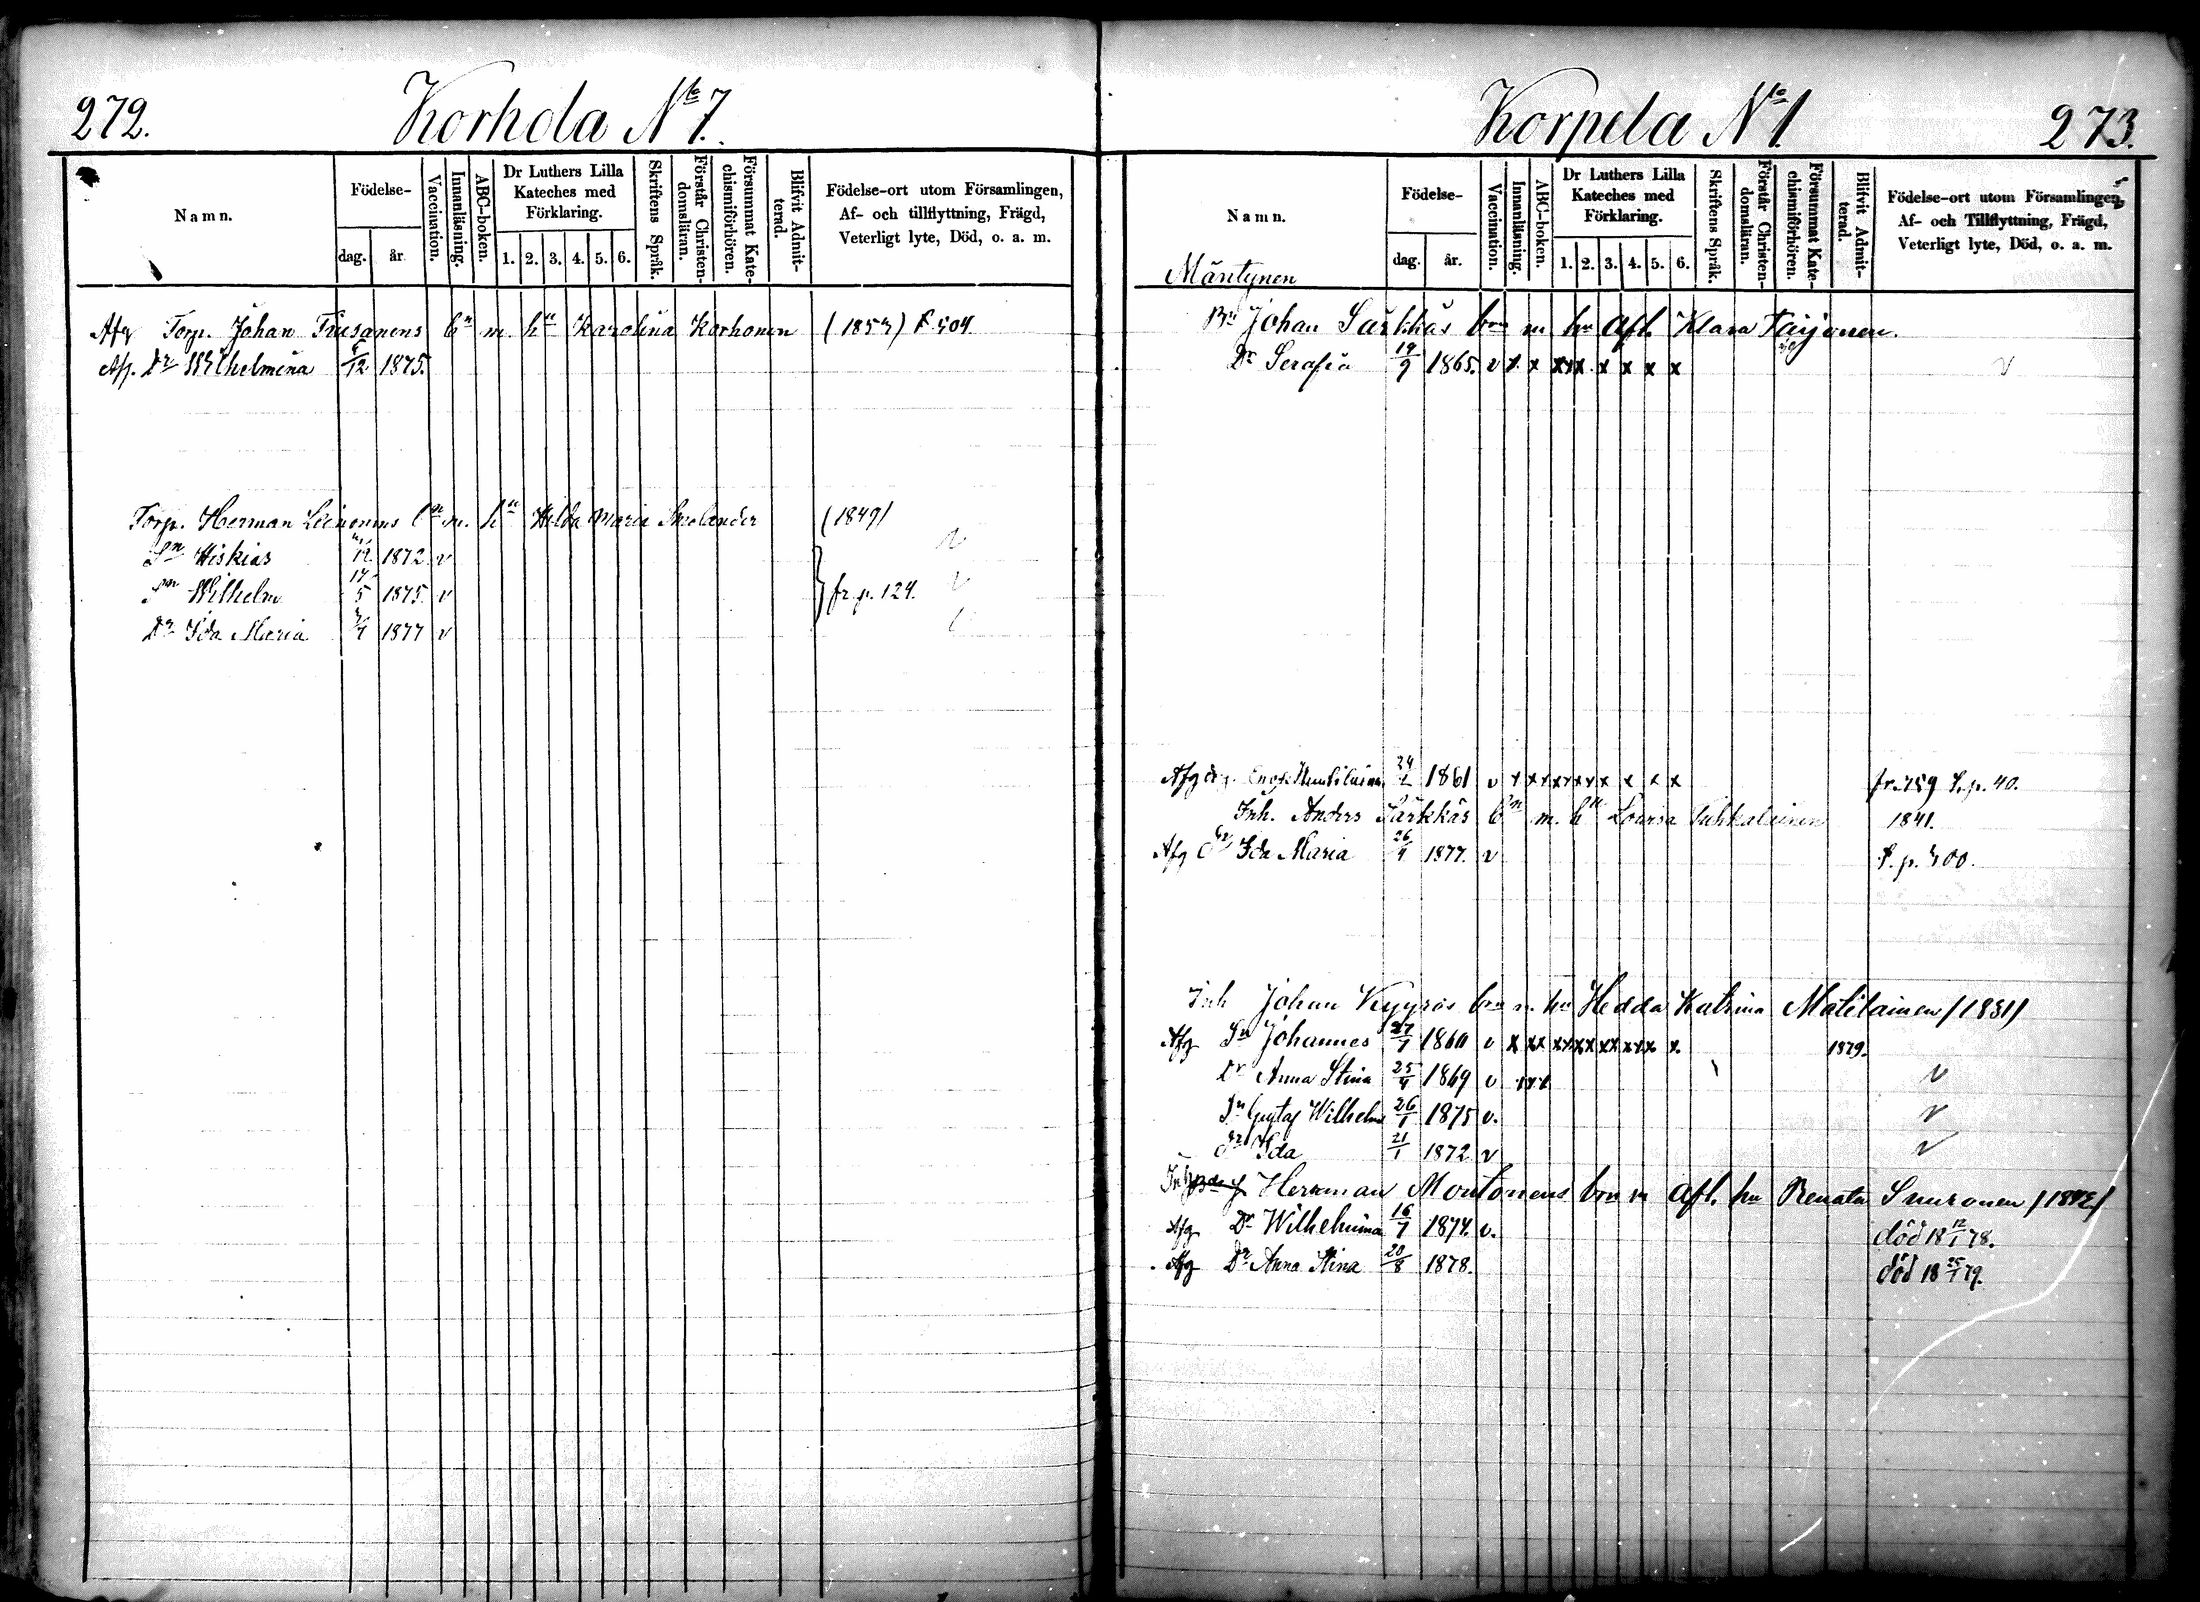 272.
Korhola No 7.
Namn.
Födelse-
dag.
år
Vaccination.
Innanläsning.
ABC-boken.
Dr Luthers Lilla Kateches med Förklaring.
1. 2. 3. 4. 5. 6.
Skriftens Språk.
Förstår Christendomsläran.
Försummat Katechismiförhören.
Blifvit Admitterad.
Födelse-ort utom Församlingen,
Af- och tillflyttning, Frägd,
Veterligt lyte, Död, o. a. m.
Afg Torp. Johan Trusanens bn m. hn Karolina Korhonen (1853)
Dr Wilhelmina 12 1875.
Torp. Herman Leinonens bn m. hn Hilda Maria Smolander (1849)
Sn Hiskias 12 1872 v
Sn Wilhelm 17/5 1875 v fr. p. 124.
Dr Ida Maria 1877 v
Korpela No 1.
273.
Namn.
Mäntynen
Födelse-
dag.
år.
Vaccination.
Innanläsning.
ABC-boken.
Dr Luthers Lilla Kateches med Förklaring.
1. 2. 3. 4. 5. 6.
Skriftens Språk.
Förstår Christendomsläran.
Försummat Katechismiförhören.
Blifvit Admitterad.
Födelse-ort utom Församlingen,
Af- och Tillflyttning, Frägd,
Veterligt lyte, Död, o. a. m.
Bn Johan Särkkäs bn m hn Afl. Klara Taijonen.
Dr Serafia 19/9 1865. v x x xxx x x x x v
Afg 1861 v x xxxxxx x x x p. 40.
Inh. Anders Särkkäs bn m. hn Lovisa Tuhkalainen 1841.
Afg Dr Ida Maria 26/4 1877. v
Inh Johan Kyyrös bn m. hn Hedda Katrina Matilainen (1831)
Afg Sn Johannes 27/7 1860 v x xx xxxx xx xxx x. 1879.
Dr Anna Stina 25/4 1869 v xxx v
Sn Gustaf Wilhelm 26/1 1875 v. v
Dr Ida 21/1 1872 v v
Inh Herman Montonens bn m Afl. hn Renata Snuronen
Afg Dr Wilhelmina 16/7 1874. v. död 18 12/1 78.
Afg Dr Anna Stina 20/8 1878. död 18 25/1 79.